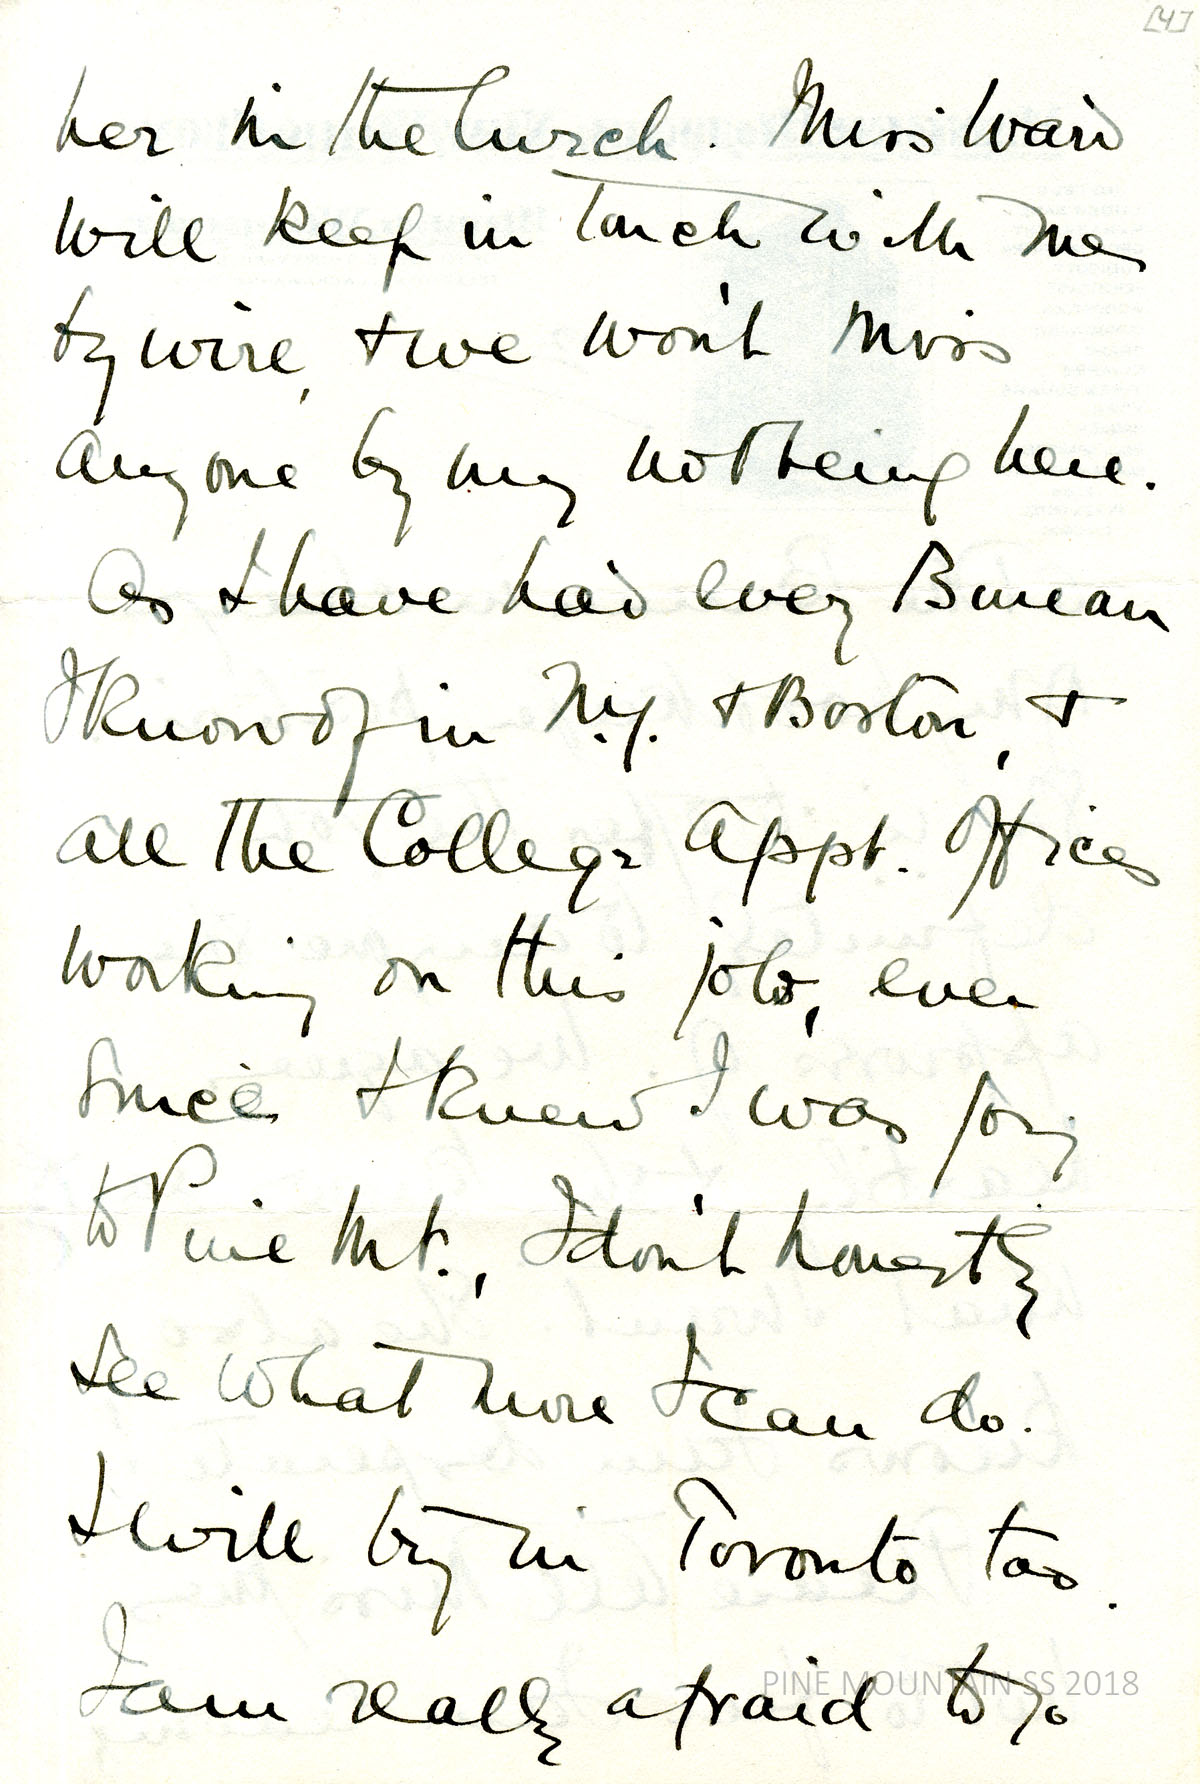 [4]
her in the lurch. Miss Ward
will keep in touch with me
by wire, + we won't miss
anyone by my not being here.
As I have had every Bureau
I know of in N.Y. + Boston, +
all the College Appt. Offices
working on this job, ever
since I knew I was going
to Pine Mt., I don't honestly
see what more I can do.
I will try in Toronto too.
I am really afraid to go
PINE MOUNTAIN SS 2018